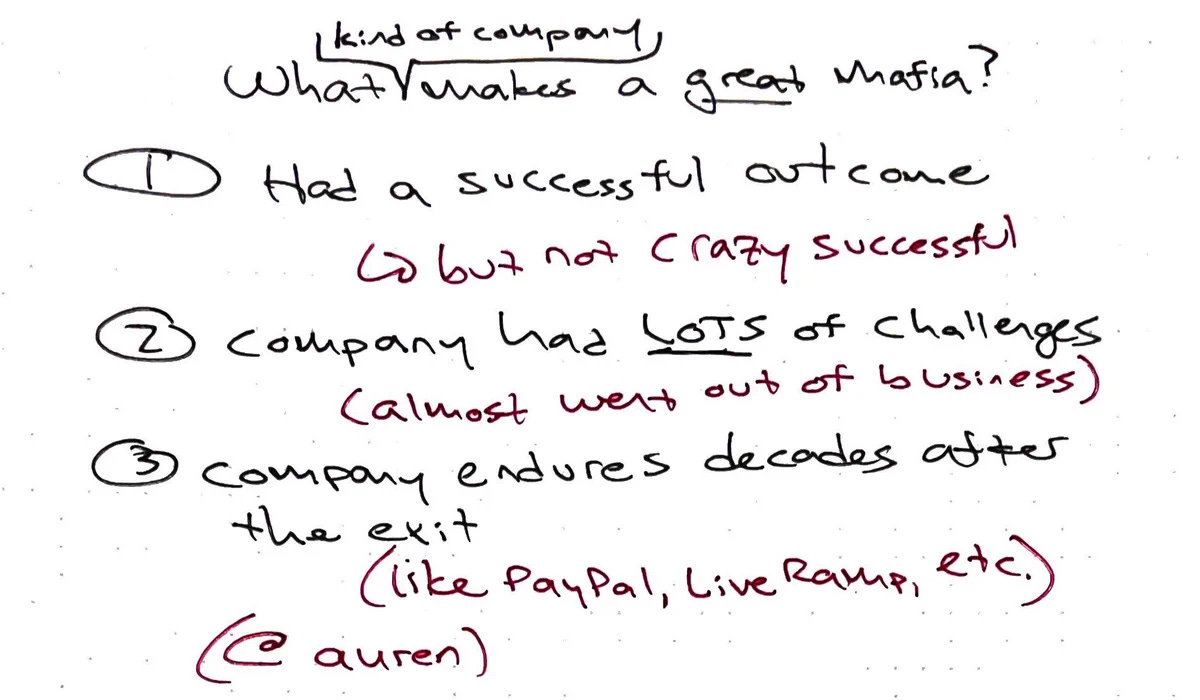 kind of company
What makes a great mafia?
1 Had a successful outcome
↳ but not crazy successful
2 Company had LOTS of challenges
(almost went out of business)
3 Company endures decades after
the exit
(like PayPal, LiveRamp, etc.)
(@auren)